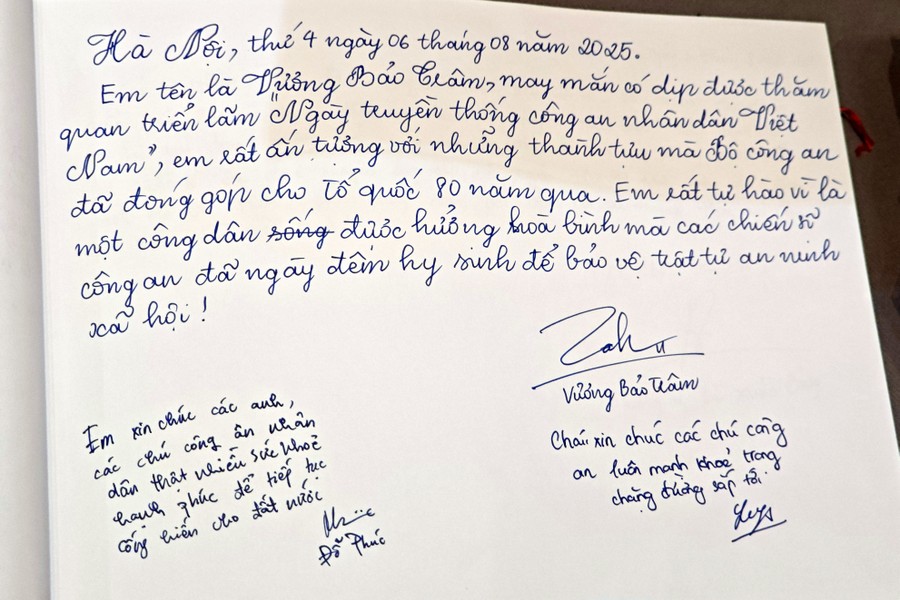 Hà Nội, thứ 4 ngày 06 tháng 08 năm 2025.
Em tên là Vương Bảo Trâm, may mắn có dịp được thăm
quan triển lãm "Ngày truyền thống công an nhân dân Việt
Nam", em rất ấn tượng với những thành tựu mà Bộ công an
đã đóng góp cho Tổ quốc 80 năm qua. Em rất tự hào vì là
một công dân sống được hưởng hoà bình mà các chiến sĩ
công an đã ngày đêm hy sinh để bảo vệ trật tự an ninh
xã hội!
Vương Bảo Trâm
Em xin chúc các anh,
các chú công ân nhân
dân thật nhiều sức khoẻ
hạnh phúc để tiếp tục
cống hiến cho đất nước
Đỗ Phúc
Cháu xin chúc các chú công
an luôn mạnh khoẻ trong
chặng đường sắp tới